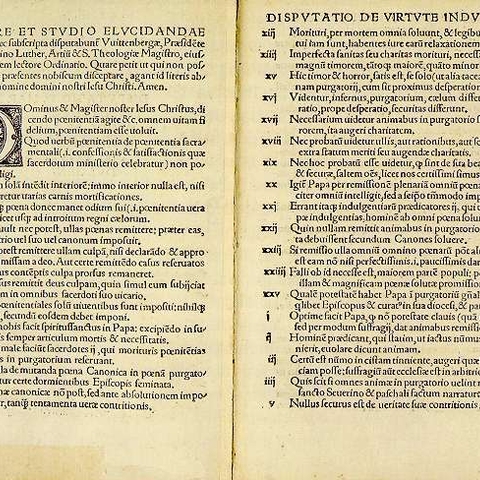 RE ET STVDIO ELVCIDANDAE
ec subscripta disputabunt Vuittenbergæ, Præsidēte
tino Luther, Artiū & S. Theologiæ Magistro, eius-
dem lectore Ordinario. Quare petit ut qui non pos
præsentes nobiscum disceptare, agant id literis ab-
nomine domini nostri Iesu Christi. Amen.
Ominus & Magister noster Iesus Christus, di
cendo pœnitentiā agite &c. omnem uitam fi
delium, pœnitentiam esse uoluit.
Quod uerbū pœnitentia de pœnitentia sacra
mentali (.i. confessionis & satisfactionis quæ
sacerdotum ministerio celebratur) non po
ligi.
solā intēdit interiorē; immo interior nulla est, nisi
retur uarias carnis mortificationes.
pœna donec manet odium sui (.i. pœnitentia vera
icet usq; ad introitum regni cælorum.
ult nec potest, ullas pœnas remittere; præter eas,
trio uel suo uel canonum imposuit.
otest remittere ullam culpā, nisi declarādo & appro
missam a deo. Aut certe remittēdo casus reseruatos
us contēptis culpa prorsus remaneret.
us remittit deus culpam, quin simul eum subijciat
m in omnibus sacerdoti suo uicario.
pœnitentiales solū uiuentibus sunt impositi; nihilq;
eosdem debet imponi.
nobis facit spiritussanctus in Papa; excipiēdo in su-
s semper articulum mortis & necessitatis.
male faciūt sacerdotes ij, qui morituris pœnitētias
in purgatorium reseruant.
la de mutanda pœna Canonica in pœnā purgato-
tur certe dormientibus Episcopis seminata.
æ canonicæ nō post, sed ante absolutionem impo-
ur, tanq̄ tentamenta ueræ contritionis.
DISPVTATIO DE VIRTVTE INDV
xiij Morituri, per mortem omnia soluunt, & legibu
tui iam sunt, habentes iure earū relaxationem
xiiij Imperfecta sanitas seu charitas morituri, necess
magnū timorem, tātoq; maiorē, quāto minor
xv Hic timor & horror, satis est, se solo (ut alia tacea
nam purgatorij, cum sit proximus desperation
xvj Videntur, infernus, purgatorium, cælum differ
ratio, prope desperatio, securitas differunt.
xvij Necessarium uidetur animabus in purgatorio s
rorem, ita augeri charitatem.
xviij Nec probatū uidetur ullis, aut rationibus, aut s
extra statum meriti seu augendæ charitatis.
xix Nec hoc probatū esse uidetur, q̄ sint de sua bea
& securæ, saltem oēs, licet nos certissimi simus
xx Igit̃ Papa per remissionē plenariā omniū pœna
intelligit, sed a seipso tm̄modo im
xxj Errant itaq; indulgentiarū prædicatores ij, qui
pæ indulgentias, hominē ab omni pœna solu
xxij Quin nullam remittit animabus in purgatorio
ta debuissent secundum Canones soluere.
xxiij Si remissio ulla omniū omnino pœnarū pōt al
est eam nō nisi perfectissimis, i. paucissimis dar
xxiiij Falli ob id necesse est, maiorem partē populi; p
illam & magnificam pœnæ solutæ promission
xxv Qualē potestatē habet Papa ī purgatoriū gñal
q̄libet Episcopus & curatus in sua diocesi, & pa
j Optime facit Papa, q̄ nō potestate clauis (quā
sed per modum suffragij, dat animabus remiss
ij Hominē prædicant, qui statim, ut iactus nūmu
nierit, euolare dicunt animam.
iij Certū est nūmo in cistam tinniente, augeri quæ
ciam posse; suffragiū aūt ecclesiæ est in arbitri
iiij Quis scit si omnes animæ in purgatorio uelint r
sancto Seuerino & paschali factum narratur
v Nullus securus est de ueritate suæ contritionis,